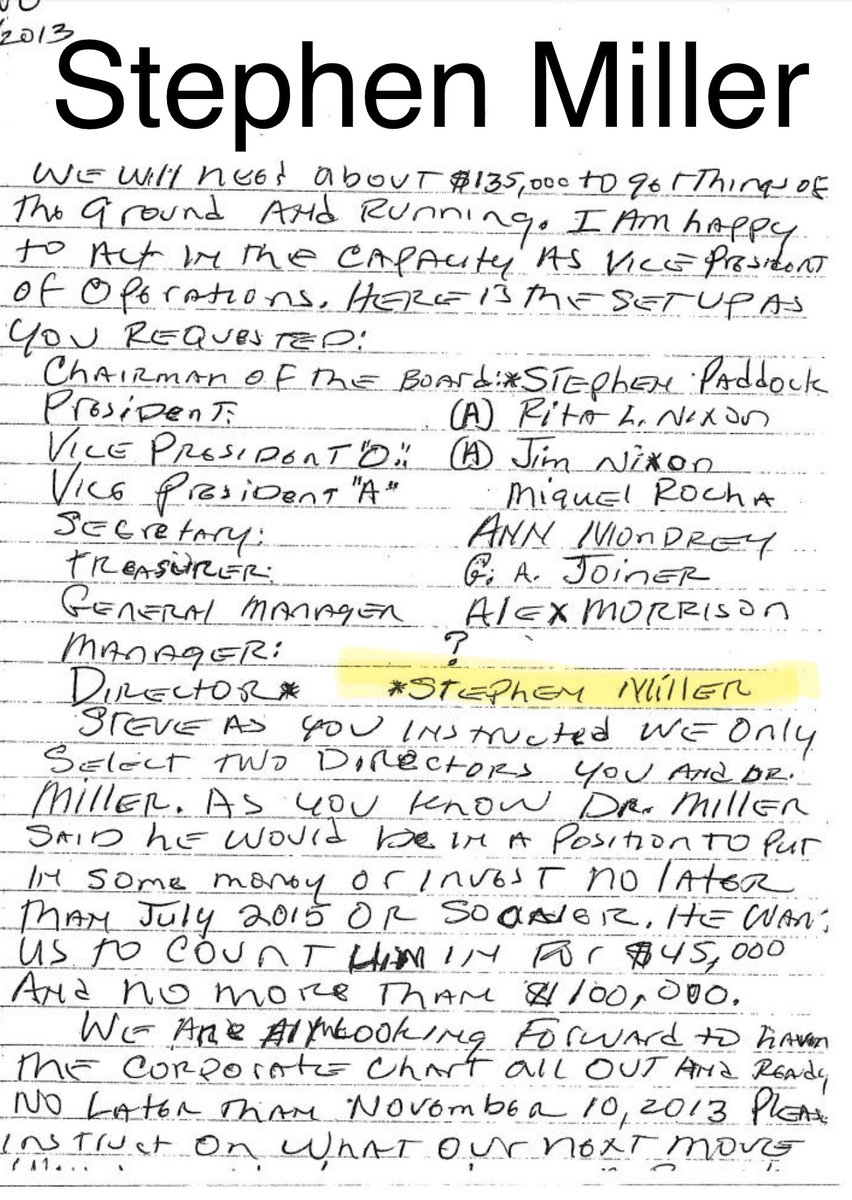 /2013
Stephen Miller
WE WIll need about $135,000 to get Things of
the Ground AND Running. I AM happy
to Act IN the CAPACITY AS VICE President
of Operations. HERE IS the SET UP AS
you REQUESTED:
CHAIRMAN OF the BOARd:*STEphen Paddock
President: (A) Rita L. Nixon
VICE PRESIDENT "O": (A) Jim Nixon
Vice President "A" Miquel Rocha
Secretary: ANN MONDREY
TREASURER: G. A. JOINER
GENERAL MANAGER ALEX MORRISON
MANAGER: ?
DIRECTOR* *STEPHEN MIllER
STEVE AS you INSTRUCTED WE Only
Select TWO Directors you AND DR.
MillER. AS you know DR. Miller
SAID HE would be IN A Position TO PUT
IN some money or INVEST NO lATER
THAN July 2015 OR SOONER. HE WAN
US to COUNT HIM IN FOR $45,000
And no more than $100,000.
WE ARE All looking Forward to have
the Corporate Chart all OUT AND Ready
NO LATER THAN November 10, 2013 Pleas
instruct on WHAT our next move